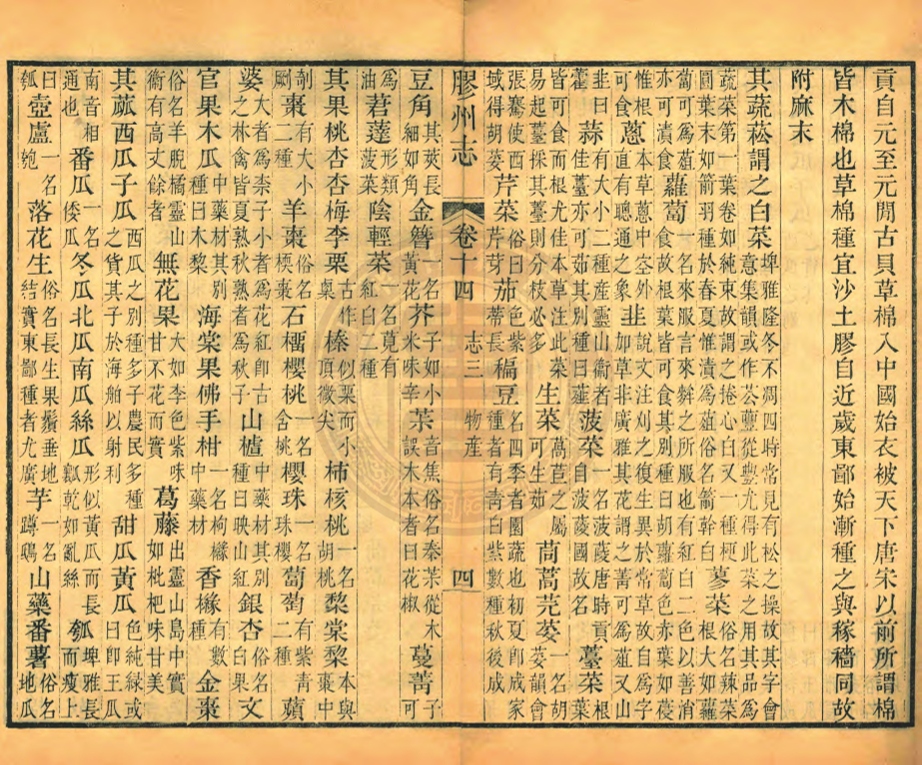 貢自元至元閒古貝草棉入中國始衣被天下唐宋以前所謂棉
皆木棉也草棉種宜沙土膠自近歲東鄙始漸種之與稼穡同故
附麻末
其蔬菘謂之白菜埤雅隆冬不凋四時常見有松之操故其字會意集韻或作蘴從豐尤得此菜之用其品為
蔬菜第一葉卷如純束故謂之捲心白又一種梗圓葉末如箭羽種於春夏惟漬為葅俗名箭幹白蓼菜俗名辣菜根大如蘿
蔔可為葅亦可漬食蘿蔔一名來服言來麰之所服也有紅白二色以善消食故根葉皆可食其別種曰胡蘿蔔色亦赤葉如荽
惟根可食蔥本草蔥中空外直有聰通之象韭說文注刈之復生異於常草故自為字如草非廣雅其花謂之菁可為葅又山
韭曰藿蒜有大小二種產靈山衞者佳薹亦可茹其別種曰薤菠菜一名菠薐唐時貢自菠薐國故名薹菜葉根
皆可食而根尤佳本草注此菜易起薹採其薹則分枝必多生菜萵苣之屬可生茹茼蒿芫荽一名胡荽韻會
張騫使西域得胡荽芹菜俗曰芹芽茄色紫蒂長稨豆名四季者園蔬也初夏卽成家種者有靑白紫數種秋後成
膠州志 卷十四 志三 物產 四
豆角其莢長細如角金簪一名黃花芥子如小米味辛茮音焦俗名秦茮從木誤木本者曰花椒蔓菁子可
為油莙薘形類菠菜陰輕菜紅白二種
其果桃杏杏梅李栗古作㮚榛似栗而小頂微尖柿核桃一名胡桃棃棠棃本與棗中
棗有大小二種羊棗俗名梗棗石橊櫻桃一名含桃櫻珠一名珠櫻萄萄有紫靑二種蘋
婆大者為柰子小者為花紅卽古之林禽皆夏熟秋熟者為秋子山樝中藥材其別種曰映山紅銀杏俗名白果文
官果木瓜中藥材其別種曰木棃海棠果佛手柑一名枸櫞中藥材香櫞有數種金棗
俗名羊脘橘靈山衞有高丈餘者無花果大如李色紫味甘不花而實葛藤出靈山島中實如枇杷味甘美
其蓏西瓜子瓜西瓜之別種多子農民多種之貨其子於海舶以射利甜瓜黃瓜色純綠或曰卽王瓜
南音相通也番瓜一名倭瓜冬瓜北瓜南瓜絲瓜形似黃瓜而長瓤乾如亂絲瓠埤雅長而瘦上
曰瓠壺盧一名匏落花生俗名長生果鬚垂地結實東鄙種者尤廣芋一名蹲鴟山藥番薯俗名地瓜